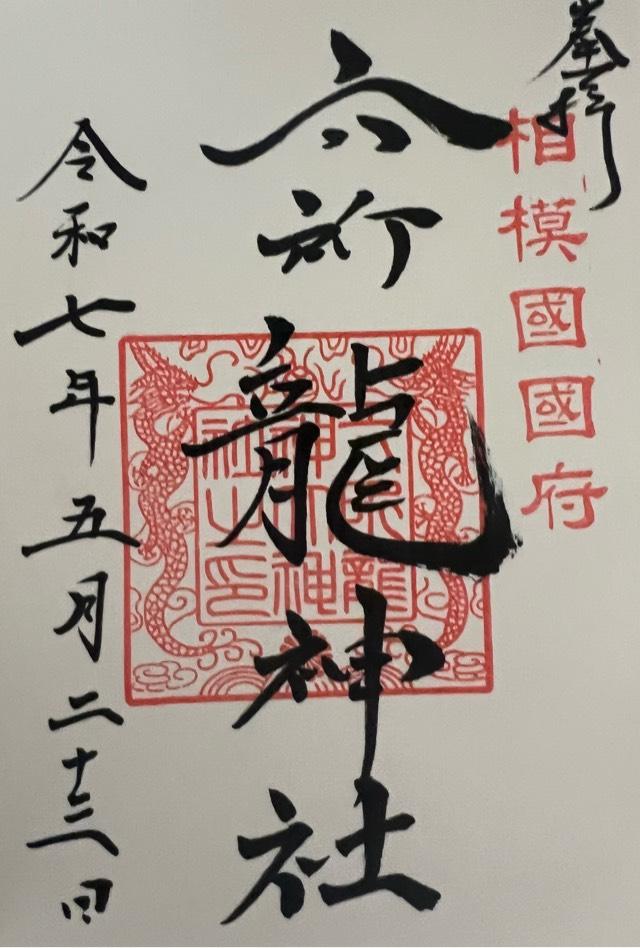 奉拝
相模國國府
六所龍神社
令和七年五月二十三日